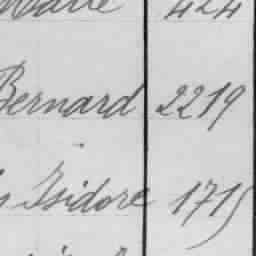 424
Bernard 2219
Isidore 1715